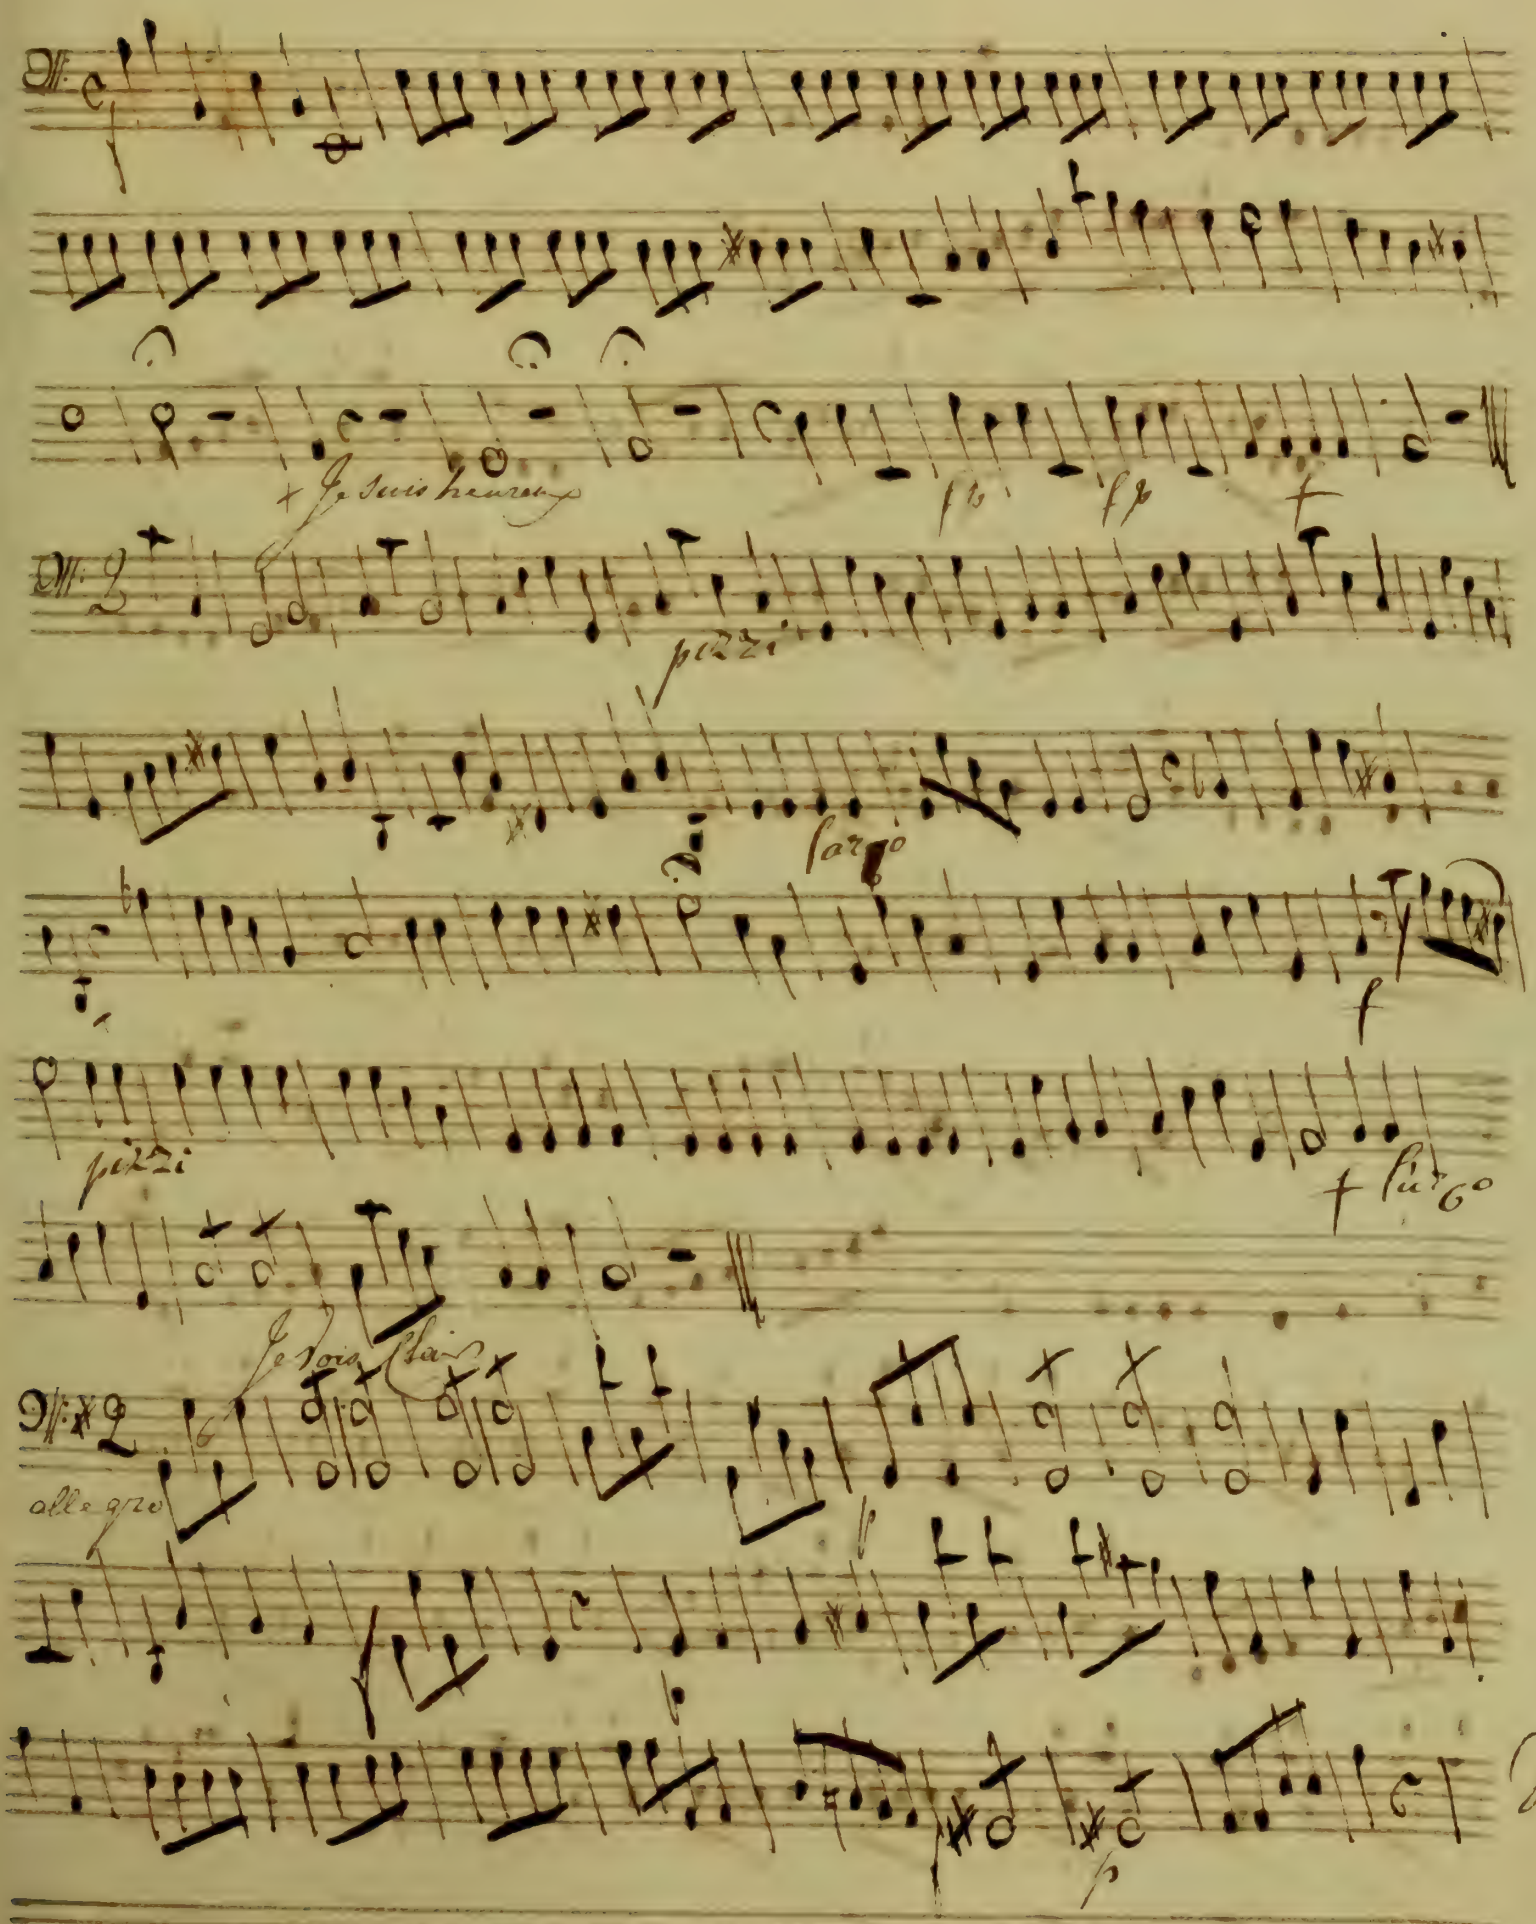 f
+ Je suis heureux fp fp +
pizzi
largo
f
pizzi
+ largo
Je vois Clair
allegro
p
f
p